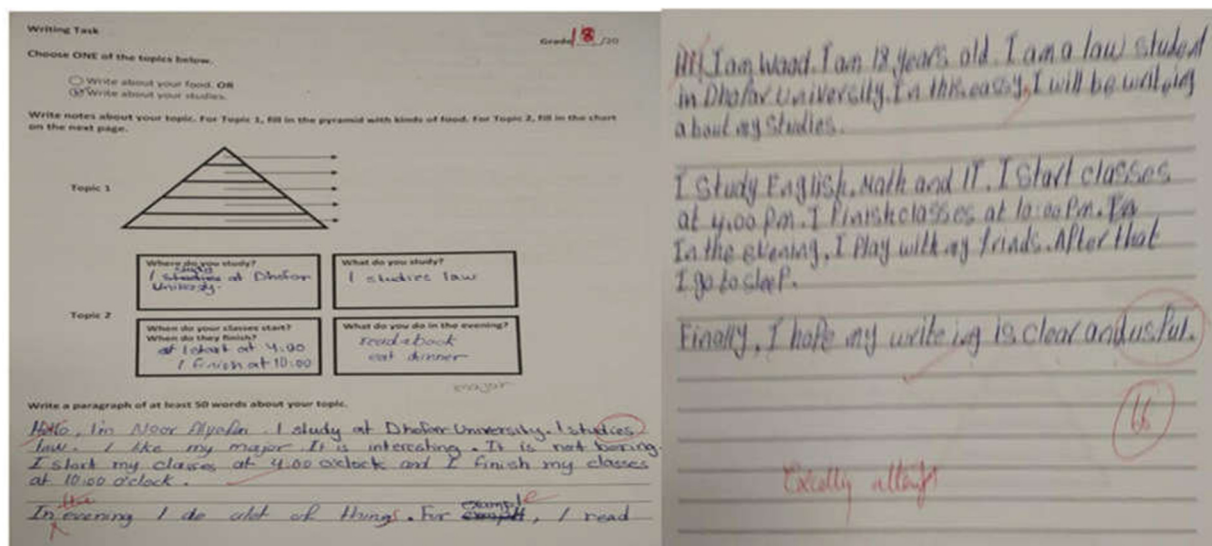 Writing Task
Grade 18 /20
Choose ONE of the topics below.
Write about your food. OR
Write about your studies.
Write notes about your topic. For Topic 1, fill in the pyramid with kinds of food. For Topic 2, fill in the chart
on the next page.
Topic 1
Topic 2
Where do you study?
I studies at Dhofar
University.
What do you study?
I studies law
When do your classes start?
When do they finish?
at I start at 4:00
I finish at 10:00
What do you do in the evening?
read a book
eat dinner
major
Write a paragraph of at least 50 words about your topic.
Hello, I'm Noor. I study at Dhofar University. I studies
law. I like my major. It is interesting. It is not boring.
I start my classes at 4:00 o'clock and I finish my classes
at 10:00 o'clock.
the
In evening I do alot of things. For example, I read
Hi! I am Waad. I am 18 years old. I am a law student
in Dhofar University. In this eassy, I will be writeing
about my studies.
I study English, Math and IT. I start classes
at 4:00 pm. I finish classes at 10:00 pm.
In the evening, I play with my frinds. After that
I go to sleep.
Finally, I hope my writeing is clear and usful.
66